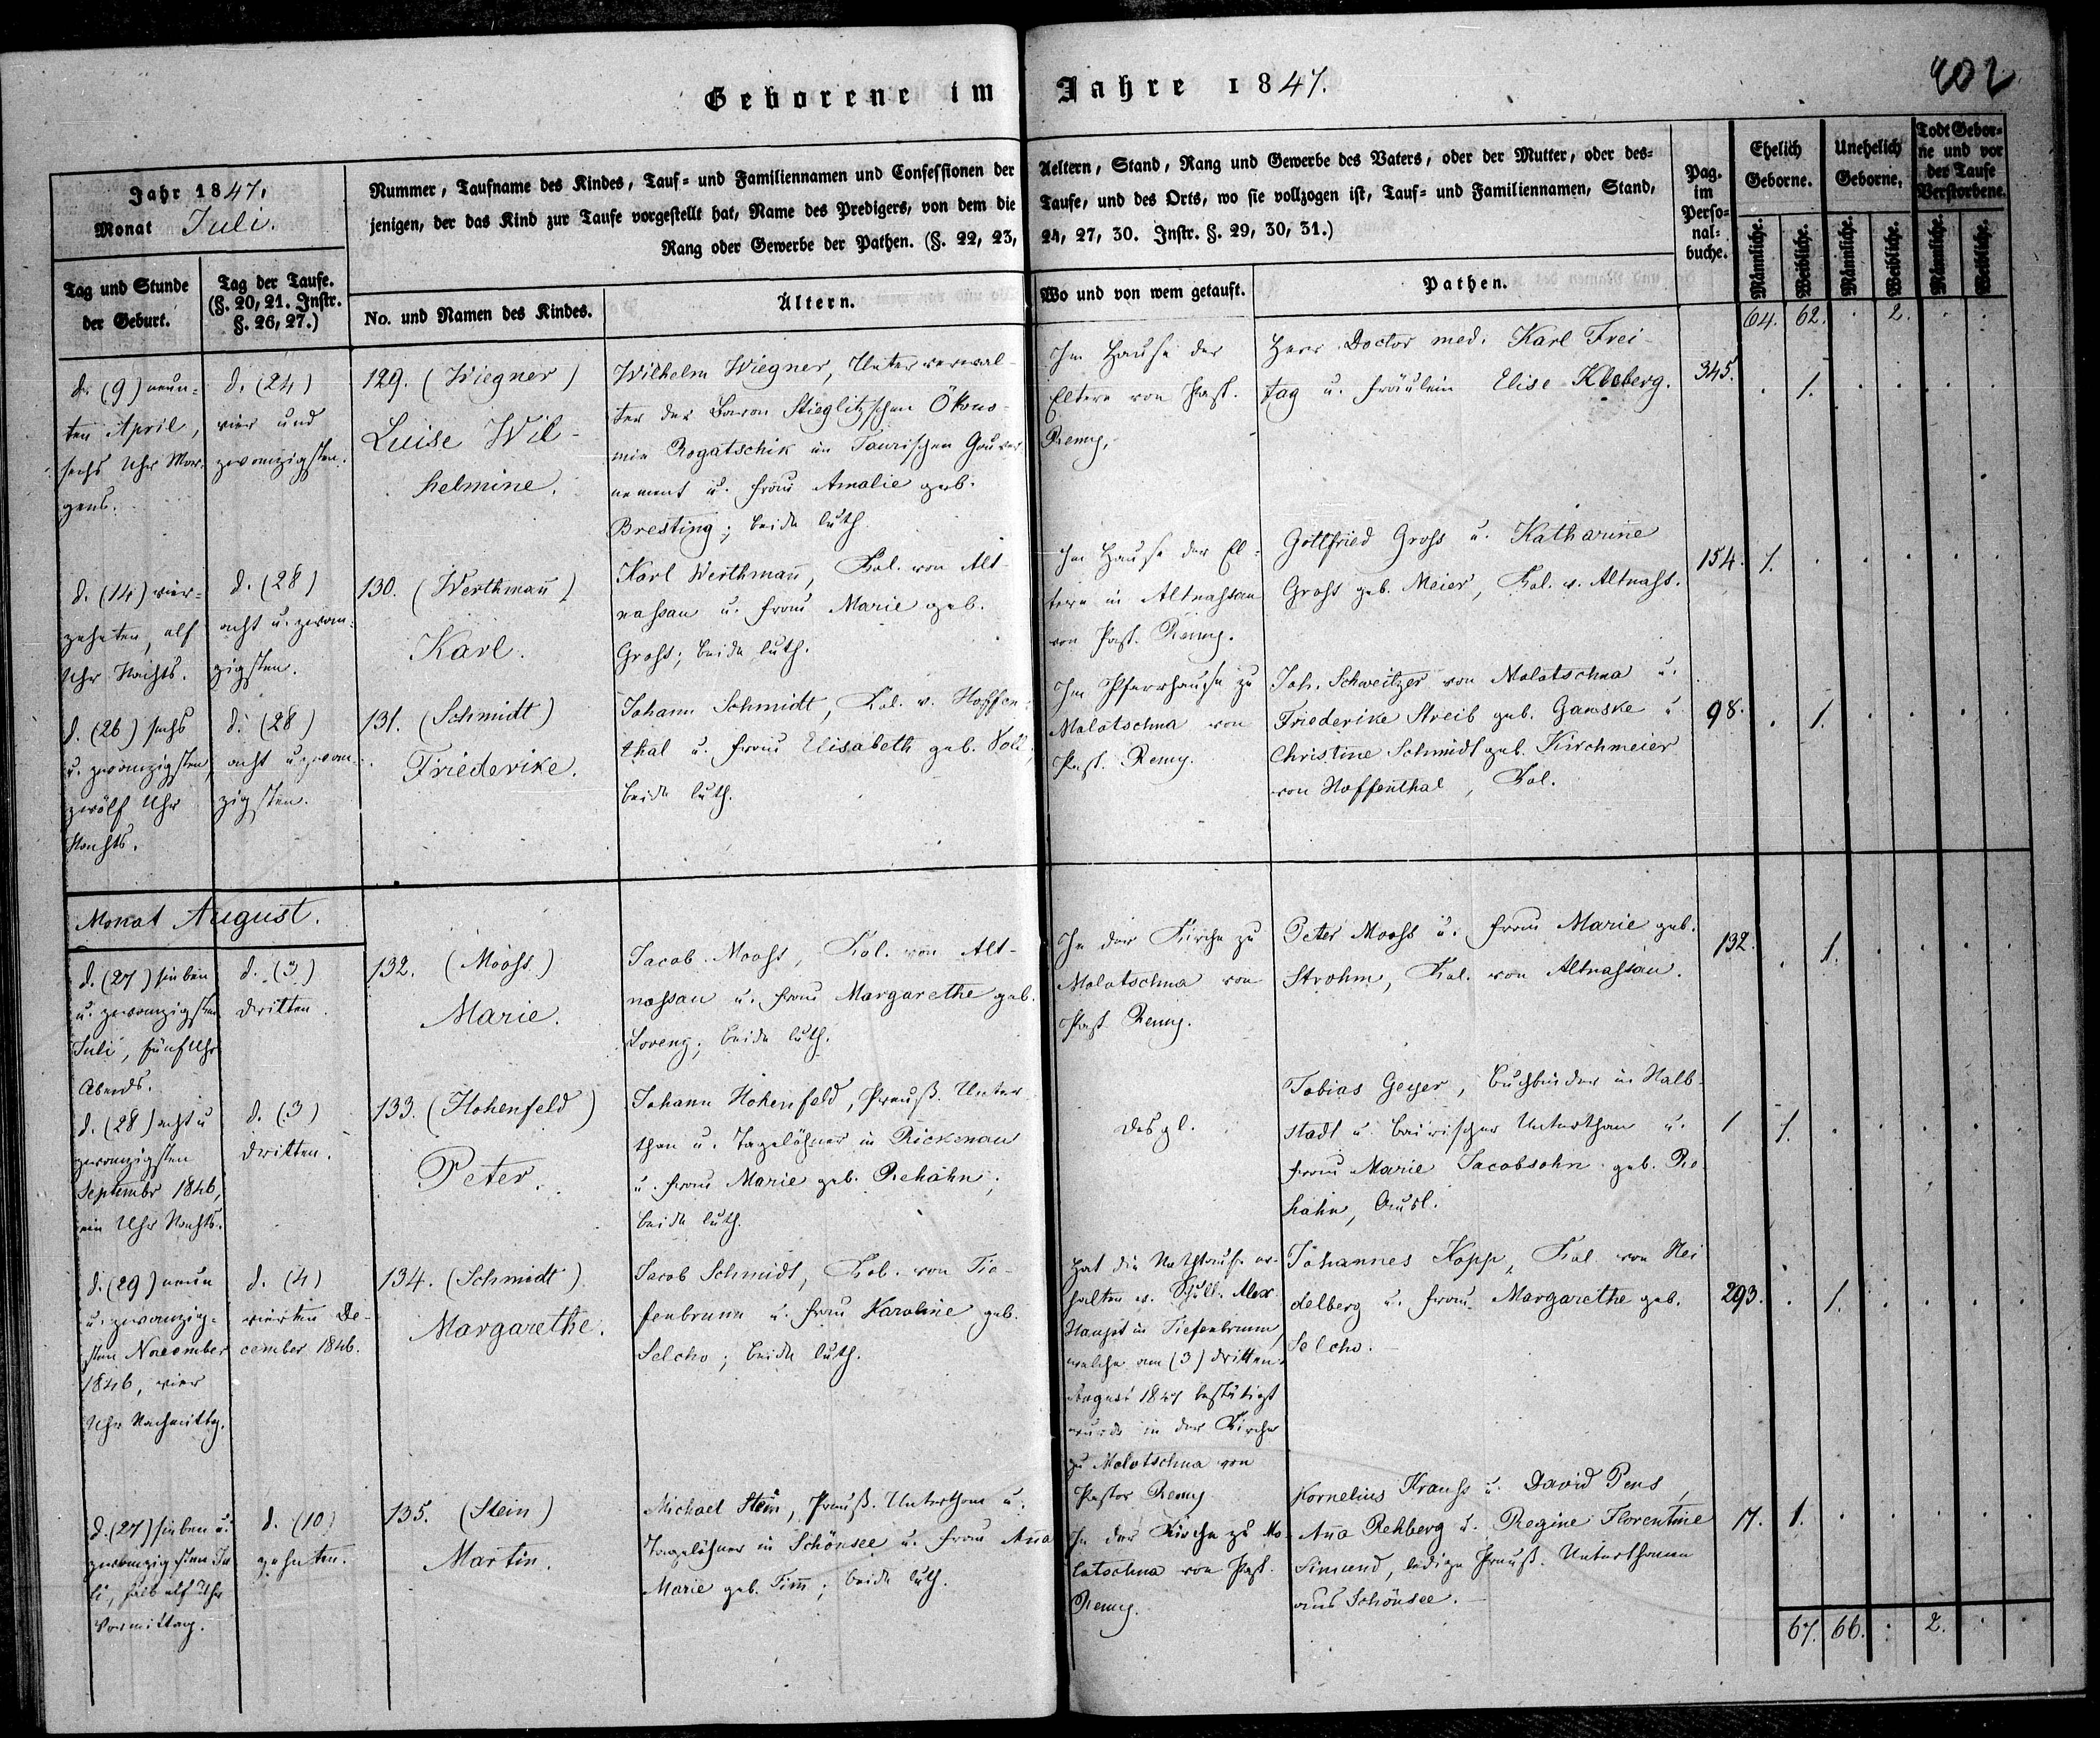 Geborene im Jahre 1847.
202
Jahr 1847.
Monat Juli.
Nummer, Taufname des Kindes, Tauf- und Familiennamen und Confessionen der Aeltern, Stand, Rang und Gewerbe des Vaters, oder der Mutter, oder des-
jenigen, der das Kind zur Taufe vorgestellt hat, Name des Predigers, von dem die Taufe, und des Orts, wo sie vollzogen ist, Tauf- und Familiennamen, Stand,
Rang oder Gewerbe der Pathen. (§. 22, 23, 24, 27, 30. Instr. §. 29, 30, 31.)
Pag.
im
Perso-
nal-
buche.
Ehelich
Geborne.
Unehelich
Geborne.
Todt Gebor-
ne und vor
der Taufe
Verstorbene.
Tag und Stunde
der Geburt.
Tag der Taufe.
(§. 20, 21. Instr.
§. 26, 27.)
No. und Namen des Kindes.
Ältern.
Wo und von wem getauft.
Pathen.
Männliche.
Weibliche.
Männliche.
Weibliche.
Männliche.
Weibliche.
64. 62. . 2. . .
d. (9) neun-
ten April,
sechs Uhr Mor-
gens.
d. (24)
vier und
zwanzigsten.
129. (Wiegner)
Luise Wil-
helmine.
Wilhelm Wiegner, Unterverwal-
ter der Baron Stieglitzschen Ökono-
mie Rogatschik im Taurischen Gouver-
nement u. Frau Amalie geb.
Bresting; beide luth.
Im Hause der
Eltern von Past.
Remy.
Herr Doctor med. Karl Frei-
tag u. Fräulein Elise Kleberg.
345. . 1. . . . .
d. (14) vier-
zehnten, elf
Uhr Nachts.
d. (28)
acht u. zwan-
zigsten.
130. (Werthmañ)
Karl.
Karl Werthmañ, Kol. von Alt-
nassau u. Frau Marie geb.
Groß; beide luth.
Im Hause der El-
tern in Altnassau
von Past. Remy.
Gottfried Groß u. Katharine
Groß geb. Meier, Kol. v. Altnass.
154. 1. . . . . .
d. (26) sechs
u. zwanzigsten,
zwölf Uhr
Nachts.
d. (28)
acht u. zwan-
zigsten.
131. (Schmidt)
Friederike.
Johann Schmidt, Kol. v. Hoffen-
thal u. Frau Elisabeth geb. Voll;
beide luth.
Im Pfarrhause zu
Molotschna von
Past. Remy.
Joh. Schweitzer von Molotschna u.
Friederike Streib geb. Ganske u.
Christine Schmidt geb. Kirchmeier
von Hoffenthal, Kol.
98. . 1. . . . .
Monat August.
d. (27) sieben
u. zwanzigsten
Juli, fünf Uhr
Abends.
d. (3)
dritten.
132. (Mooß)
Marie.
Jacob Mooß, Kol. von Alt-
nassau u. Frau Margarethe geb.
Lorenz; beide luth.
In der Kirche zu
Molotschna von
Past. Remy.
Peter Mooß u. Frau Marie geb.
Strohm, Kol. von Altnassau.
132. . 1. . . . .
d. (28) acht u.
zwanzigsten
Septembr 1846,
ein Uhr Nachts.
d. (3)
dritten.
133. (Hohenfeld)
Peter.
Johann Hohenfeld, Preuß. Unter-
than u. Tagelöhner in Rickenau
u. Frau Marie geb. Rehahn;
beide luth.
Desgl.
Tobias Geyer, Buchbinder in Halb-
stadt u. bairischer Unterthan u.
Frau Marie Jacobsohn geb. Re-
hahn, Ausl.
1 1. . . . . .
d. (29) neun
u. zwanzig-
sten November
1846, vier
Uhr Nachmittg.
d. (4)
vierten De-
cember 1846.
134. (Schmidt)
Margarethe.
Jacob Schmidt, Kol. von Tie-
fenbrunn u. Frau Karoline geb.
Selcho; beide luth.
Hat die Nothtaufe er-
halten v. Schull. Alex
Haupt in Tiefenbrunn,
welche am (3) dritten
August 1847 bestätigt
wurde in der Kirche
zu Molotschna von
Pastor Remy
Johannes Kopp, Kol. von Hei-
delberg u. Frau Margarethe geb.
Selcho.
293. . 1. . . . .
d. (27) sieben u.
zwanzigsten Ju-
li, halb elf Uhr
Vormittag.
d. (10)
zehnten.
135. (Stein)
Martin.
Michael Stein, Preuß. Unterthan u.
Tagelöhner in Schönsee u. Frau Aña
Marie geb. Tim̄; beide luth.
In der Kirche zu Mo-
lotschna von Past.
Remy.
Kornelius Krauß u. David Pens,
Aña Rehberg u. Regine Florentine
Simund, ledige Preuß. Unterthanen
aus Schönsee.
17. 1. . . . . .
67. 66. . 2. . .